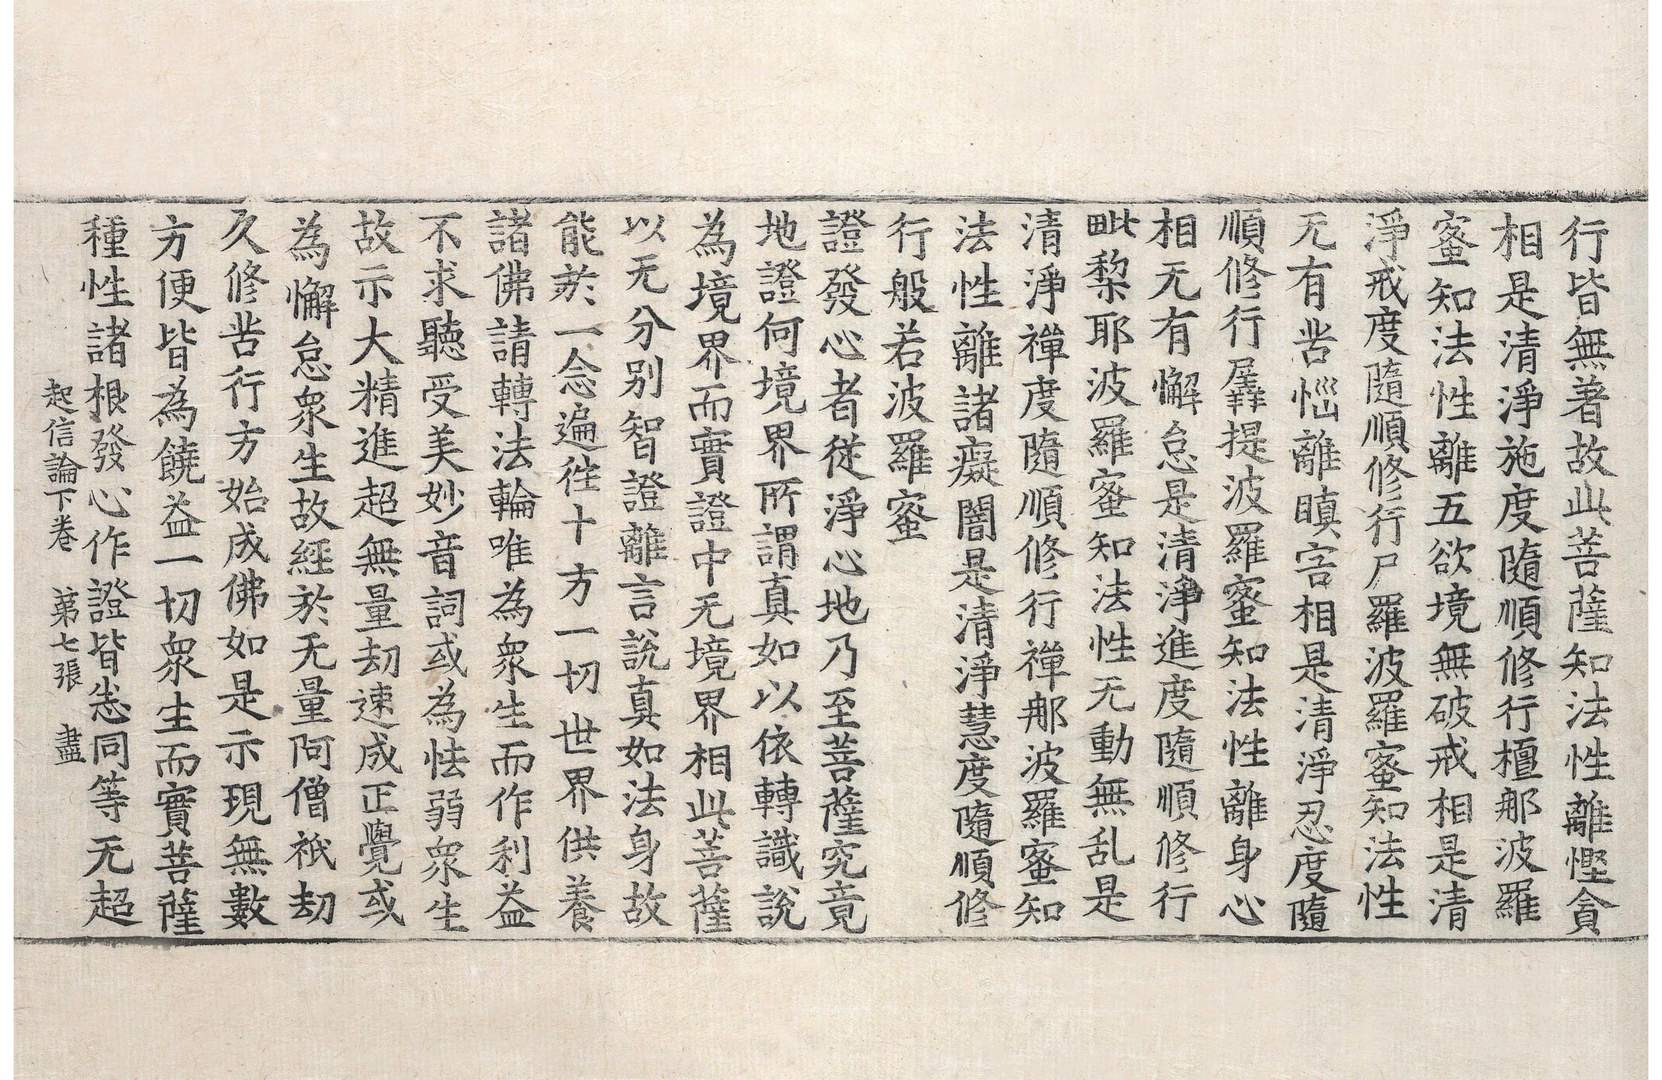 行皆無著故此菩薩知法性離慳貪
相是清淨施度隨順修行檀那波羅
蜜知法性離五欲境無破戒相是清
淨戒度隨順修行尸羅波羅蜜知法性
无有苦惱離瞋害相是清淨忍度隨
順修行羼提波羅蜜知法性離身心
相无有懈怠是清淨進度隨順修行
毗梨耶波羅蜜知法性无動無乱是
清淨禪度隨順修行禪那波羅蜜知
法性離諸癡闇是清淨慧度隨順修
行般若波羅蜜
證發心者從淨心地乃至菩薩究竟
地證何境界所謂真如以依轉識說
為境界而實證中无境界相此菩薩
以无分别智證離言說真如法身故
能於一念遍往十方一切世界供養
諸佛請轉法輪唯為衆生而作利益
不求聽受美妙音詞或為怯弱衆生
故示大精進超無量劫速成正覺或
為懈怠衆生故經於无量阿僧祇劫
久修苦行方始成佛如是示現無數
方便皆為饒益一切衆生而實菩薩
種性諸根發心作證皆悉同等无超
起信論下卷 第七張 盡